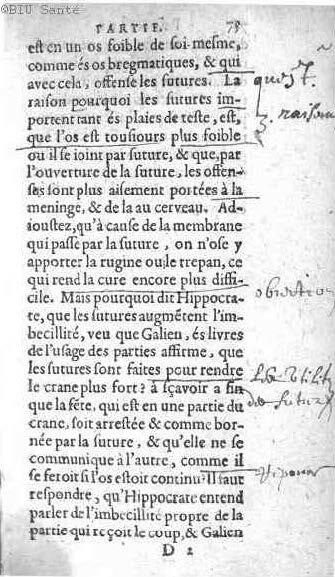 ©BIU Santé
PARTIE. 75
est en un os foible de soi-mesme,
comme és os bregmatiques, & qui
avec cela, offense les sutures. La
raison pourquoi les sutures im-
portent tant és plaies de teste, est,
que l'os est tousiours plus foible
où il se ioint par suture, & que, par
l'ouverture de la suture, les offen-
ses sont plus aisement portées à la
meninge, & de la au cerveau. Ad-
ioustez, qu'à cause de la membrane
qui passe par la suture, on n'ose y
apporter la rugine ou le trepan, ce
qui rend la cure encore plus diffi-
cile. Mais pourquoi dit Hippocra-
te, que les sutures augmẽtent l'im-
becillité, veu que Galien, és livres
de l'usage des parties affirme, que
les sutures sont faites pour rendre
le crane plus fort? à sçavoir a fin
que la fẽte, qui est en une partie du
crane, soit arrestée & comme bor-
née par la suture, & qu'elle ne se
communique à l'autre, comme il
se feroit si l'os estoit continu? Il faut
respondre, qu'Hippocrate entend
parler de l'imbecillité propre de la
partie qui reçoit le coup, & Galien
D 2
quest.
raison
obiection